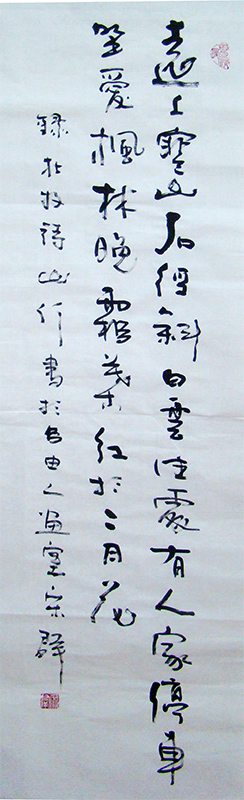 遠上寒山石徑斜白雲生處有人家停車
坐愛楓林晚霜葉紅於二月花
錄杜牧詩山行書於自由人畫室宋群